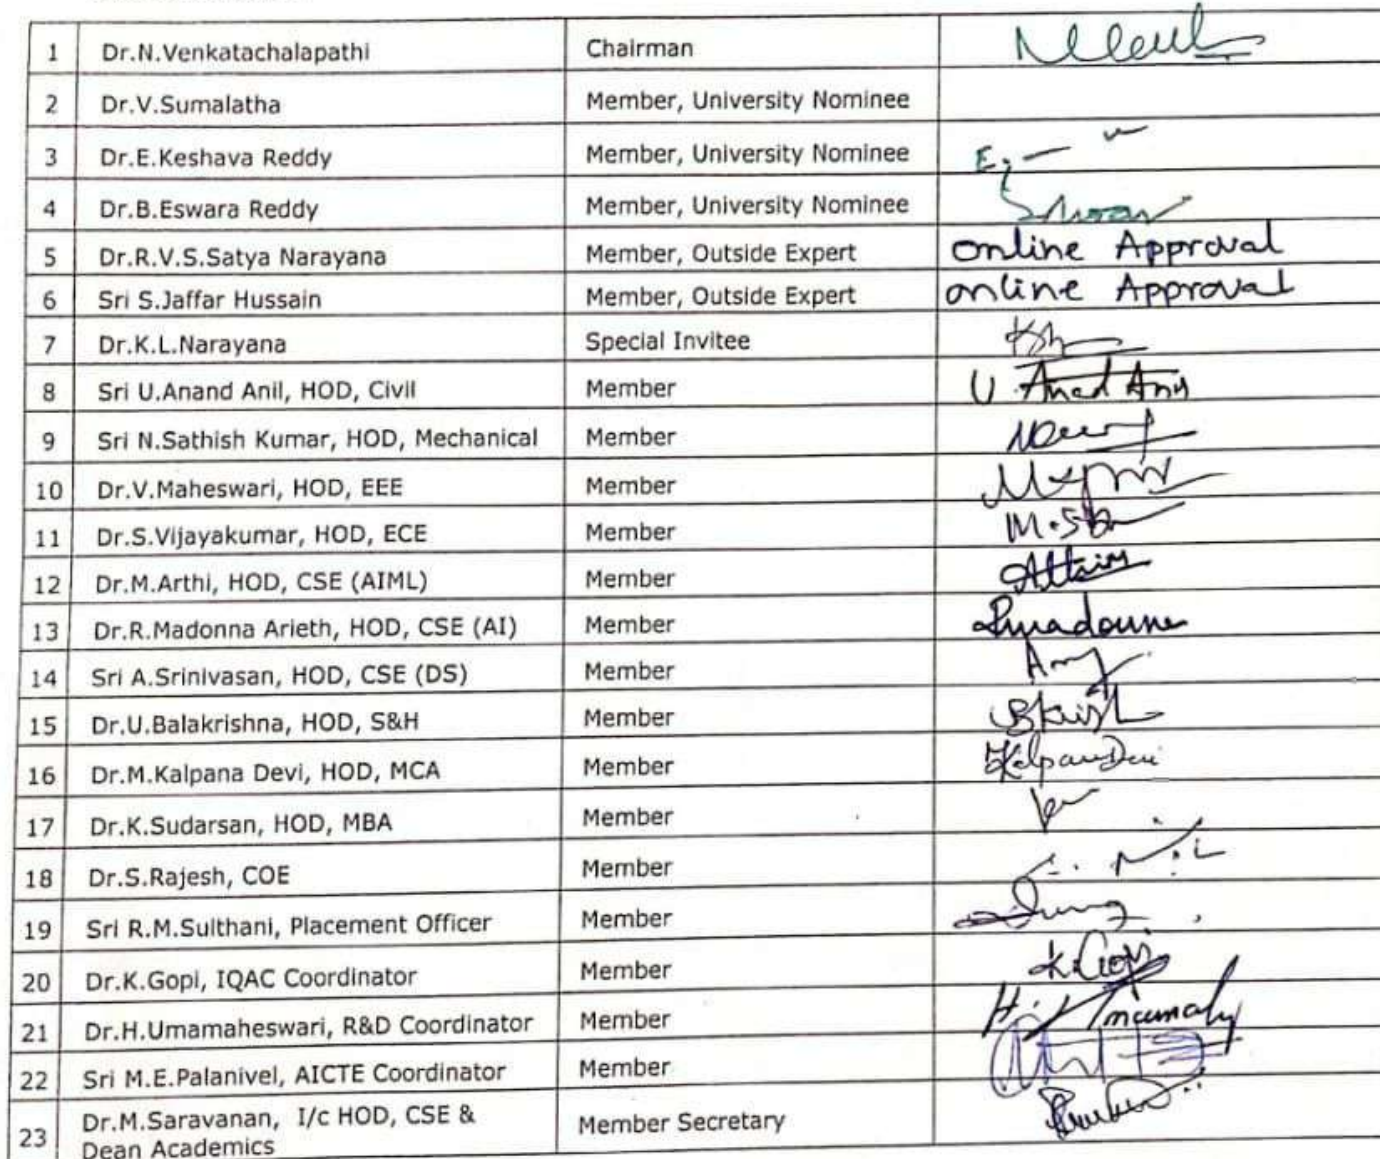 1 Dr.N.Venkatachalapathi Chairman
2 Dr.V.Sumalatha Member, University Nominee
3 Dr.E.Keshava Reddy Member, University Nominee
4 Dr.B.Eswara Reddy Member, University Nominee
5 Dr.R.V.S.Satya Narayana Member, Outside Expert Online Approval
6 Sri S.Jaffar Hussain Member, Outside Expert Online Approval
7 Dr.K.L.Narayana Special Invitee
8 Sri U.Anand Anil, HOD, Civil Member
9 Sri N.Sathish Kumar, HOD, Mechanical Member
10 Dr.V.Maheswari, HOD, EEE Member
11 Dr.S.Vijayakumar, HOD, ECE Member
12 Dr.M.Arthi, HOD, CSE (AIML) Member
13 Dr.R.Madonna Arieth, HOD, CSE (AI) Member
14 Sri A.Srinivasan, HOD, CSE (DS) Member
15 Dr.U.Balakrishna, HOD, S&H Member
16 Dr.M.Kalpana Devi, HOD, MCA Member
17 Dr.K.Sudarsan, HOD, MBA Member
18 Dr.S.Rajesh, COE Member
19 Sri R.M.Sulthani, Placement Officer Member
20 Dr.K.Gopi, IQAC Coordinator Member K.Gopi
21 Dr.H.Umamaheswari, R&D Coordinator Member
22 Sri M.E.Palanivel, AICTE Coordinator Member
23 Dr.M.Saravanan, I/c HOD, CSE & Member Secretary
Dean Academics